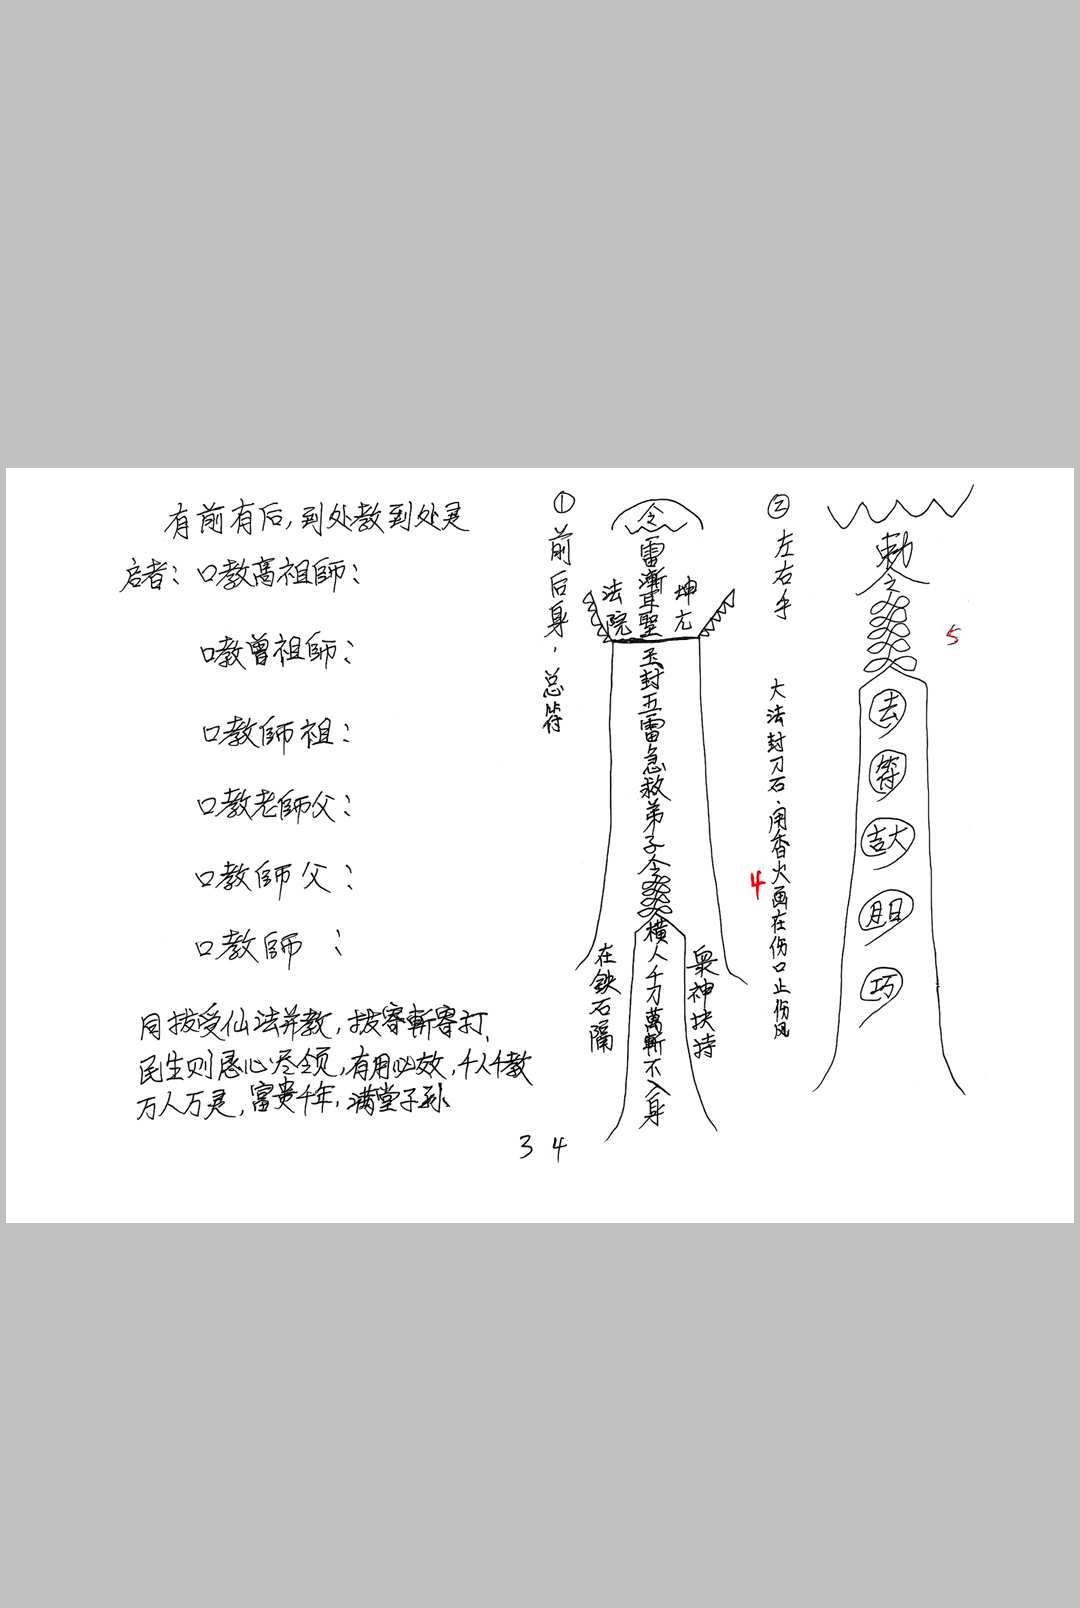 有前有后，到处教到处灵
启者：口教高祖師：
口教曾祖師：
口教師祖：
口教老師父：
口教師父：
口教師 ：
同拔受仙法并教，
民生则悉心尽领，有用必效，千人千教
万人万灵，富贵千年，满堂子孙
① 前后身，总符
令
雷漸耳聖
法院
坤
玉封五雷急救弟子令
横人千刀萬斬不入身
在鉄石隔
衆神扶持
② 左右手
大法封刀石，用香火画在伤口止伤风
4
勅令
去
符
大
巧
5
34